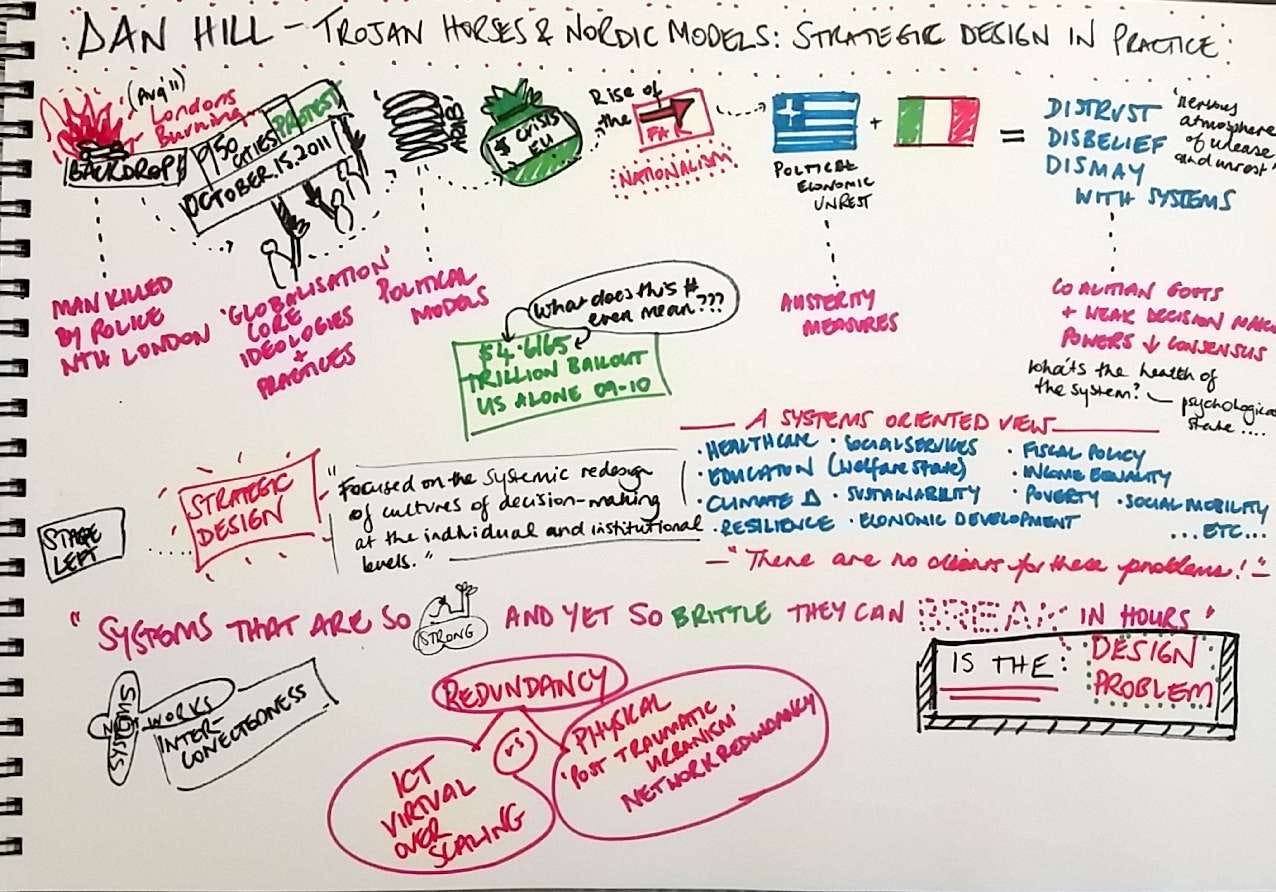 DAN HILL – TROJAN HORSES & NORDIC MODELS: STRATEGIC DESIGN IN PRACTICE
(Aug '11)
Londons
Burning
BACKDROP
950
CITIES
PROTEST
OCTOBER.15.2011
$ CRISIS
EU
Rise of
the
FAR
NATIONALISM
POLITICAL
ECONOMIC
UNREST
+
=
DISTRUST
DISBELIEF
DISMAY
WITH SYSTEMS
"nervous
atmosphere
of unease
and unrest"
MAN KILLED
BY POLICE
NTH LONDON
'GLOBALISATION'
CORE
IDEOLOGIES
+
PRACTICES
POLITICAL
MODELS
What does this #
even mean???
$4.6165
TRILLION BAILOUT
US ALONE 09-10
AUSTERITY
MEASURES
COALITIAN GOVTS
+ WEAK DECISION MAKI
POWERS ↓ CONSENSUS
What's the health of
the system? – psychological
state ....
STAGE
LEFT
STRATEGIC
DESIGN
"Focused on the systemic redesign
of cultures of decision-making
at the individual and institutional
levels."
A SYSTEMS ORIENTED VIEW
· HEALTHCARE · SOCIAL SERVICES · FISCAL POLICY
· EDUCATION (Welfare State) · INCOME EQUALITY
· CLIMATE Δ · SUSTAINABILITY · POVERTY · SOCIAL MOBILITY
· RESILIENCE · ECONOMIC DEVELOPMENT ...ETC...
– "There are no clients for these problems!" –
"SYSTEMS THAT ARE SO STRONG AND YET SO BRITTLE THEY CAN BREAK IN HOURS"
IS THE: DESIGN
PROBLEM
WORKS
INTER-
CONECTEDNESS
REDUNDANCY
VS
ICT
VIRTUAL
OVER
SCALING
PHYSICAL
'POST TRAUMATIC
URBANISM'
NETWORK REDUNDANCY